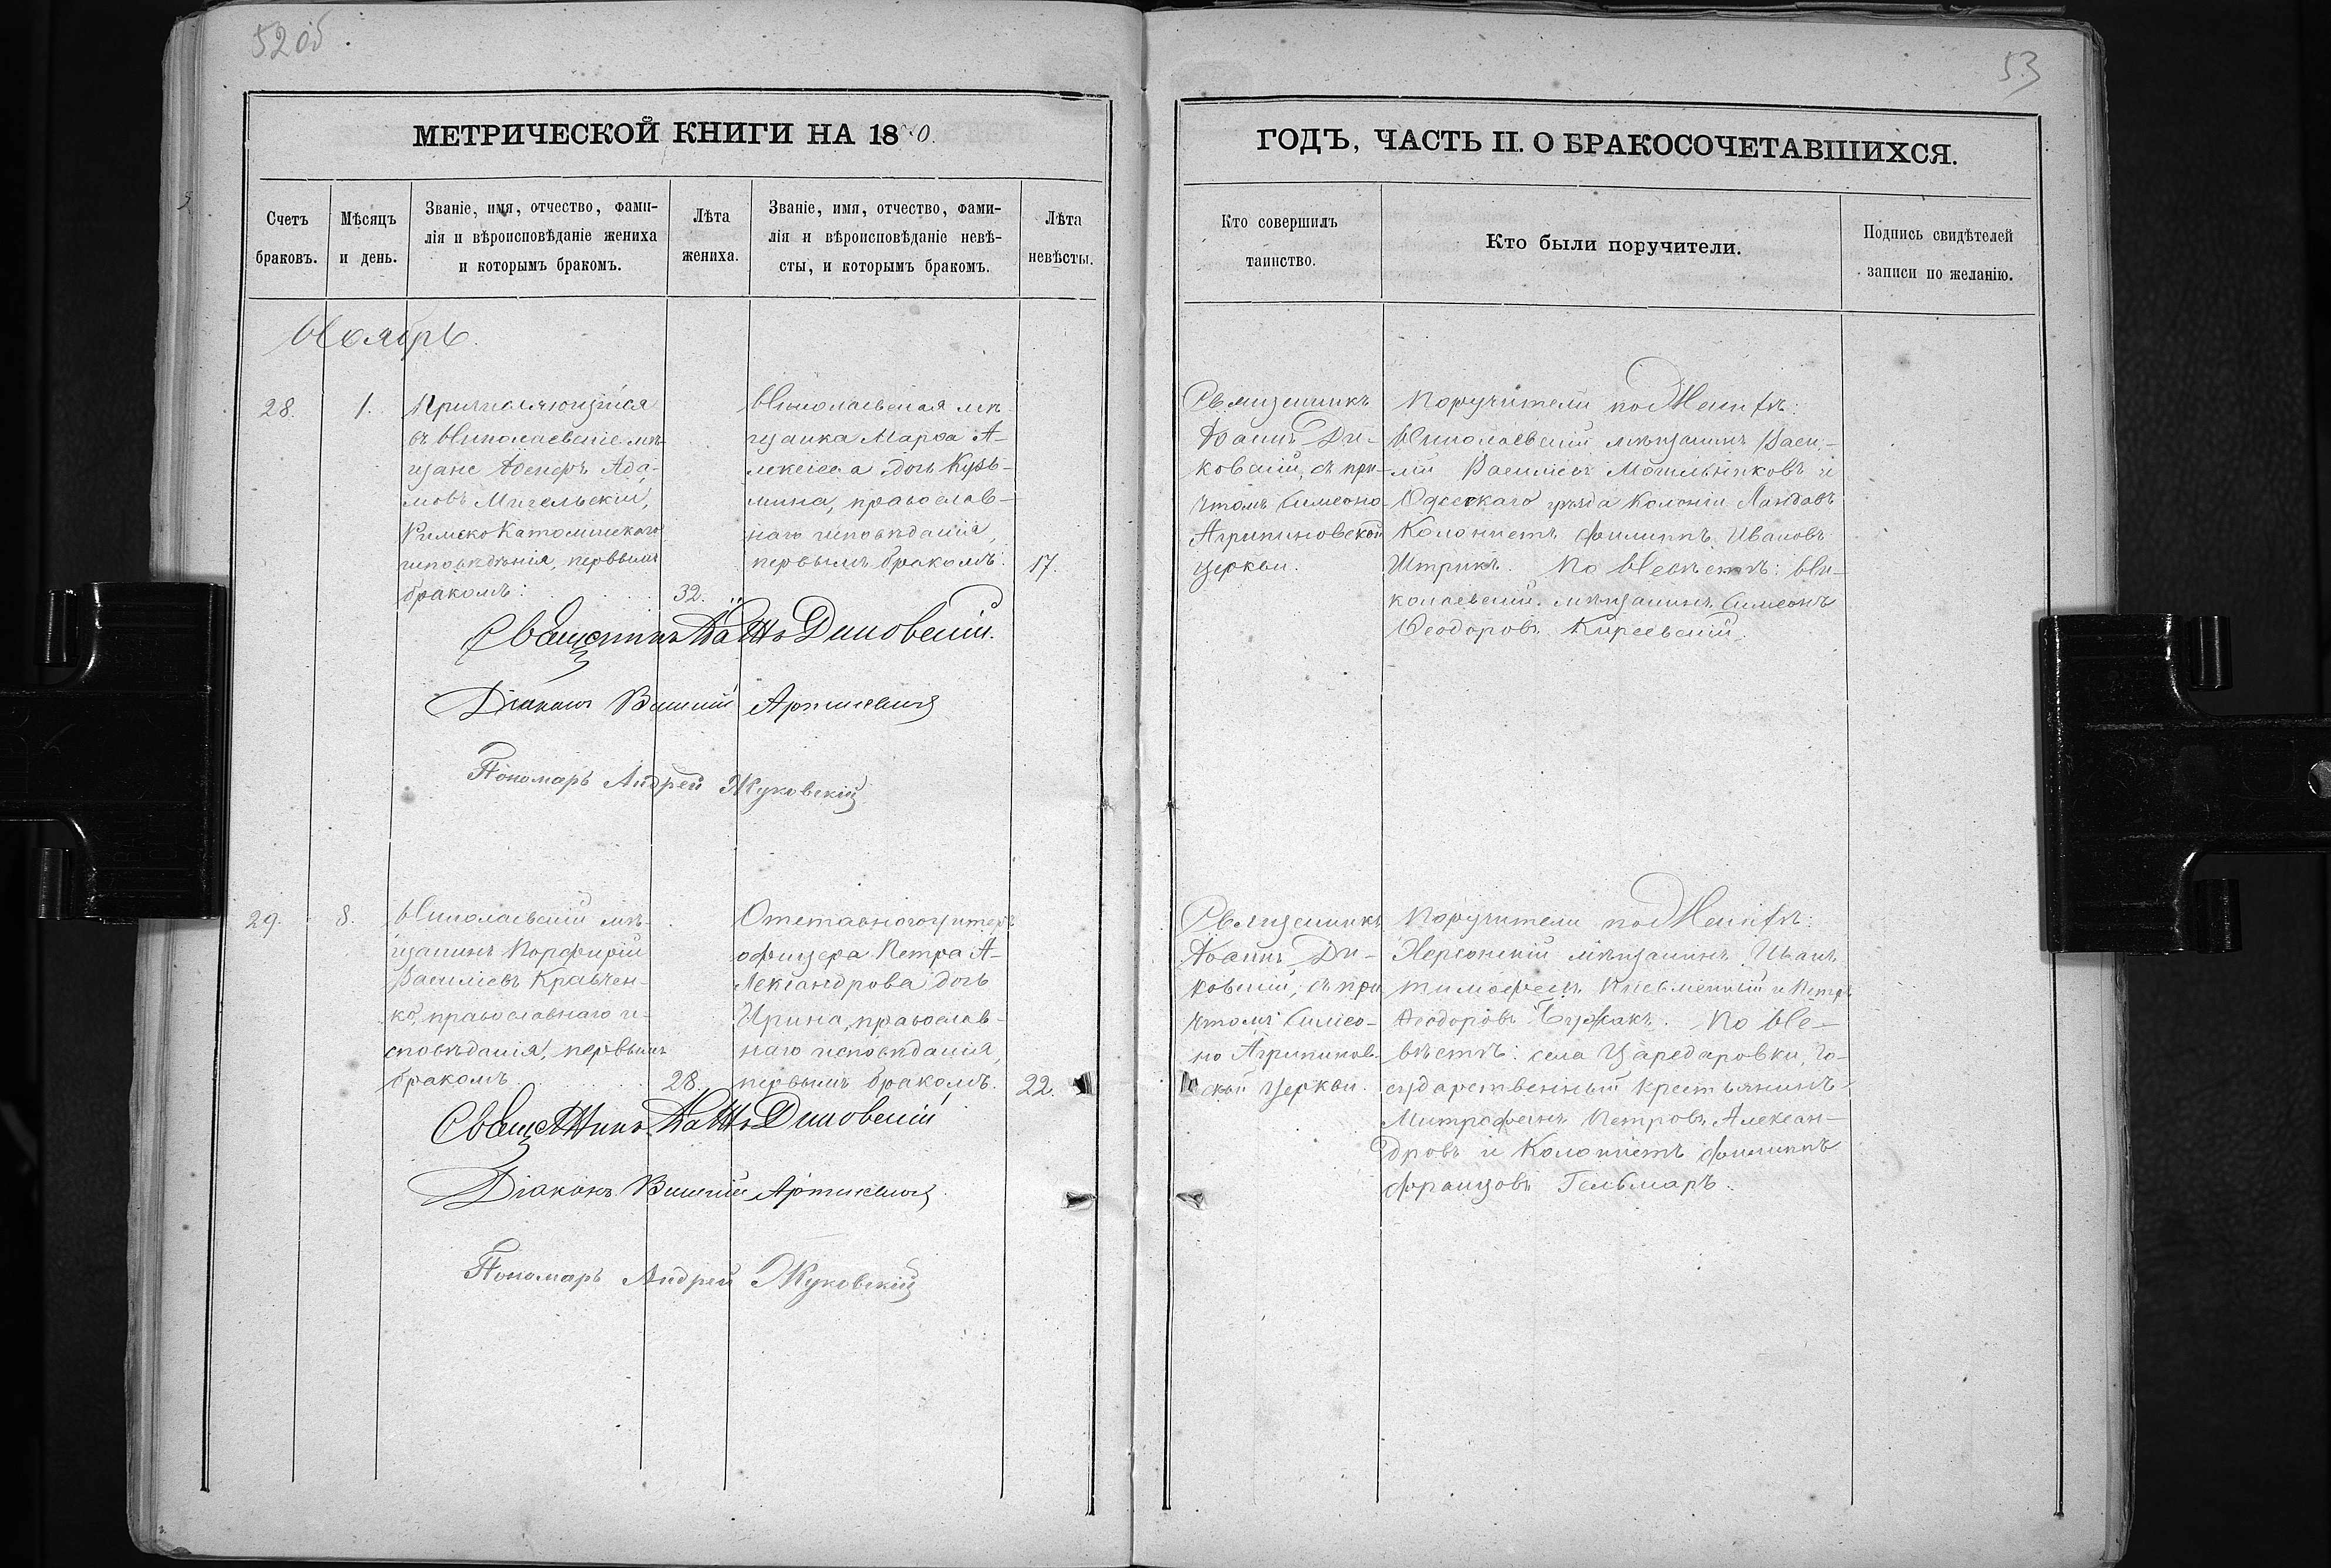 52об.
МЕТРИЧЕСКОЙ КНИГИ НА 1880.
Счетъ браковъ.
Мѣсяцъ и день.
Званіе, имя, отчество, фами-
лія и вѣроисповѣданіе жениха
и которымъ бракомъ.
Лѣта
жениха.
Званіе, имя, отчество, фами-
лія и вѣроисповѣданіе невѣ-
сты, и которымъ бракомъ.
Лѣта
невѣсты.
Ноябрь.
28.
1.
Причисляющійся
въ Николаевскіе мѣ-
щане Іосифъ Ада-
мовъ Мигельскій,
Римско Католическаго
исповѣданія, первымъ
бракомъ:
32.
Николаевская мѣ-
щанка Марѳа А-
лексѣева дочь Кузь-
мина, православ-
наго исповѣданія,
первымъ бракомъ:
17.
Священникъ Іоаннъ Диковскій.
Діаконъ Василій Артисевичъ
Пономарь Андрей Жуковскій
29.
8.
Николаевскій мѣ-
щанинъ Порфирій
Василіевъ Кравчен-
ко, православнаго и-
сповѣданія, первымъ
бракомъ
28.
Отставного унтеръ
офицера Петра А-
лександрова дочь
Ирина, православ-
наго исповѣданія,
первымъ бракомъ.
22.
Священникъ Іоаннъ Диковскій
Діаконъ Василій Артисевичъ
Пономарь Андрей Жуковскій
53
ГОДЪ, ЧАСТЬ II. О БРАКОСОЧЕТАВШИХСЯ.
Кто совершилъ
таинство.
Кто были поручители.
Подпись свидѣтелей
записи по желанію.
Священникъ
Іоаннъ Ди-
ковскій, съ при-
чтомъ Симеоно
Агрипиновской
церкви.
Поручители по Женихѣ:
Николаевскій мѣщанинъ Васи-
лій Василіевъ Могильниковъ и
Одесскаго уѣзда Колоніи Ландавъ
Колонистъ Филиппъ Ивановъ
Штрикъ. По Невѣстѣ: Ни-
колаевскій мѣщанинъ Симеонъ
Ѳеодоровъ Киреевскій.
Священникъ
Іоаннъ Ди-
ковскій, съ при
чтомъ Симео-
но Агрипинов-
ской церкви.
Поручители по Женихѣ:
Херсонскій мѣщанинъ Иванъ
Тимоѳеевъ и Петръ
Ѳеодоровъ По Не-
вѣстѣ: села Царедаровки, го-
сударственный крестьянинъ
Митрофанъ Петровъ Алексан-
дровъ и Колонистъ Филиппъ
Францовъ Гельмаръ.